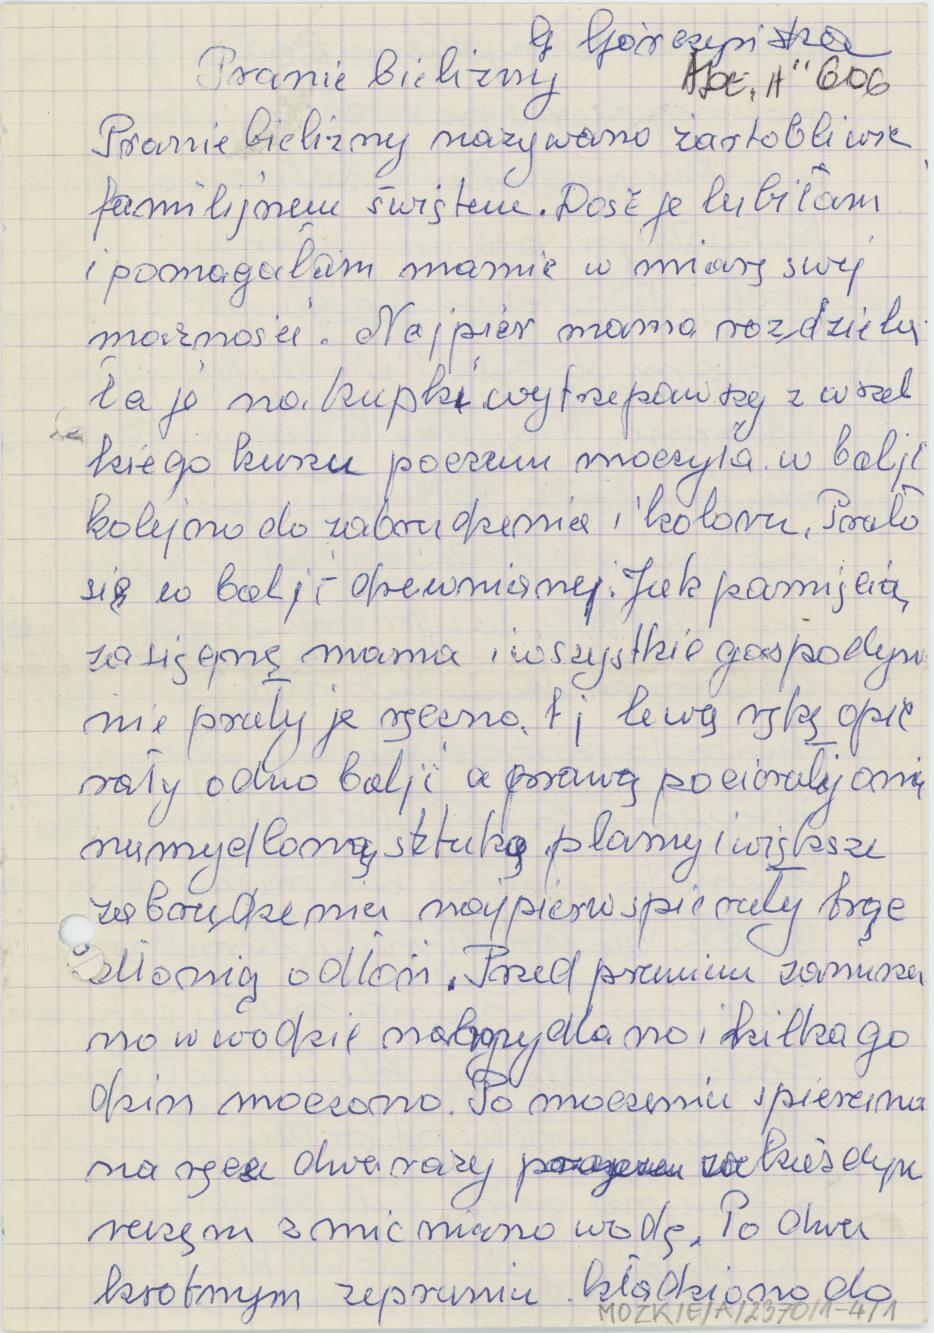 G Górczyńska
Pranie bielizny
APE "H" 606
Pranie bielizny nazywano żartobliwie
familijnem świętem. Dość je lubiłam
i pomagałam mamie w miarę swej
możności. Najpier mama rozdziela
ła je na kupki wytrzepawszy z wszel
kiego kurzu poczem moczyła w balji
kolejno do zabrudzenia i koloru. Prało
się w balji drewnianej. Jak pamięcią
zasięgnę mama i wszystkie gospody
nie prały je ręczno. tj lewą ręką opie
rały odno balji a prawą pocierały onią
namydloną sztukę plamy i większe
zabrudzenia najpierw spierały trąc
dłonią o dłoń. Przed praniem zanurza
no w wodzie namydlano i kilka go
dzin moczono. Po moczeniu spierano
na ręce dwa razy każdym
razem zmieniano wodę. Po dwu
krotnym zepraniu kładziono do
MOZKIE/A/2370/1-4/1